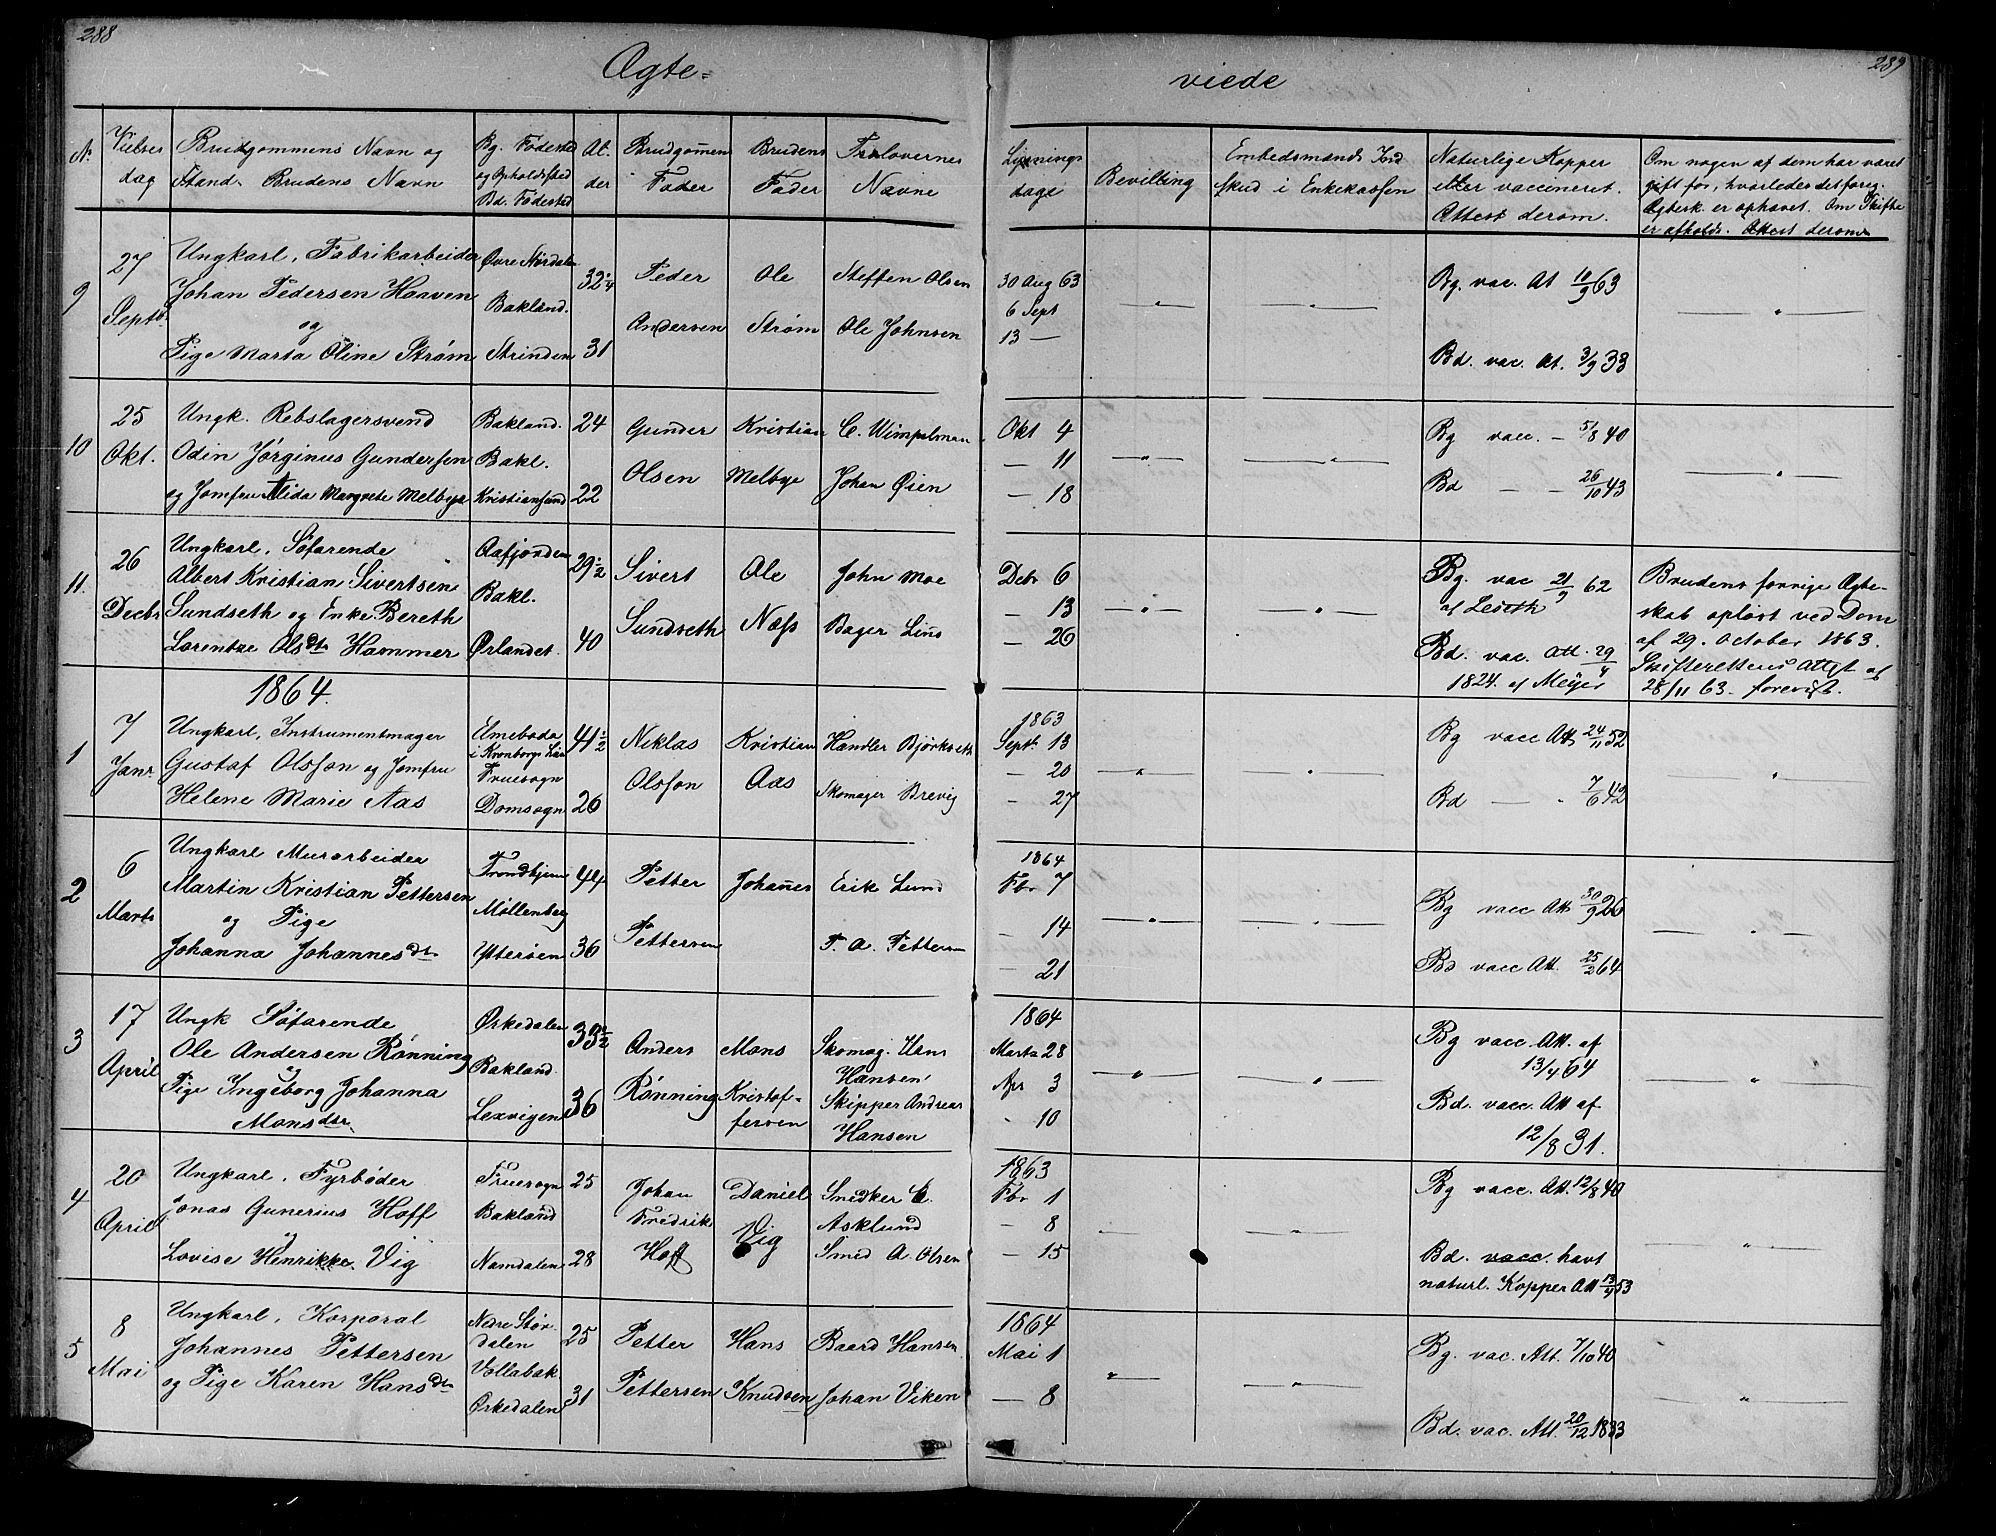 288
Ægte=
viede
289
N.
Vielses
dag
Brudgommens Navn og
Stand. Brudens Navn
Bg. Fødested
og Opholdssted
Bd. Fødested
Al.
der
Brudgom̄ens
Fader
Brudens
Fader
Forlovernes
Navne
Lysnings
dage
Bevilling
Embedsmands Ind
skud i Enkekassen
Naturlige Kopper
eller vaccineret.
Attest derom.
Om nogen af dem har været
gift før, hvorledes det foreg.
Ægtesk. er ophævet. Om Skifte
er afholdt. Attest derom
9
27
Septbr
Ungkarl, Fabrikarbeider
Johan Pedersen Haaven
og
Pige Marta Oline Strøm
Øvre Størdalen
Bakland.
Strinden
32 1/4
31
Peder
Andersen
Ole
Strøm
Steffen Olsen
Ole Johnsen
30 Aug 63
6 Sept
13 —
Bg. vac. At 10/9 63
Bd. vac. At. 3/9 33
10
25
Okt.
Ungk. Rebslagersvend
Odin Jørginus Gundersen
og Jomfru Alida Margrete Melbye
Bakland.
Bakl.
Kristiansund
24
22
Gunder
Olsen
Kristian
Melbye
C. Wimpelman
Johan Øien
Okt 4
— 11
— 18
Bg vacc. — 5/8 40
Bd — — 26/10 43
11.
26
Decbr
Ungkarl, Søfarende
Albert Kristian Sivertsen
Sundseth og Enke Bereth
Lorentze Olsdtr Hammer
Aafjorden
Bakl.
Ørlandet.
29 1/2
40
Sivert
Sundseth
Ole
Næss
John Moe
Bager Lins
Debr 6
— 13
— 20
Bg. vac 21/9 62
af Leseth
Bd. vac. Att. 29/4
1824. af Meyer
Brudens forrige Ægte-
skab opløst ved Dom
af 29. October 1863.
Skifterettens Attest af
28/11 63. forevist.
1864.
1
7
Janr
Ungkarl, Instrumentmager
Gustaf Olsson og Jomfru
Helene Marie Aas
Elmeboda
i Kronborgs Län
Fruesogn
Domsogn
41 1/2
26
Niklas
Olsson
Kristian
Aas
Handler Bjørkseth
Skomager Brevig
1863
Septr 13
— 20
— 27
Bg vacc Att 24/11 52
Bd — " 7/6 42
2
6
Marts
Ungkarl Murarbeider
Martin Kristian Pettersen
og Pige
Johanna Johannesdtr
Trondhjem
Møllenberg
Ytterøen
44
36
Petter
Pettersen
Johan̄es
Erik Lund
P. A. Pettersen
1864
Fbr 7
— 14
— 21
Bg vacc Att 30/9 26
Bd vacc Att. 25/2 64
3
17
April
Ungk Søfarende
Ole Andersen Rønning
og
Pige Ingeborg Johanna
Monsdtr
Ørkedalen
Bakland.
Lexvigen
33 1/2
36
Anders
Rønning
Mons
Kristof-
fersen
Skomag. Hans
Hansen
Skipper Andreas
Hansen
1864
Marts 28
Apr 3
- 10
Bg vacc. Att. af
13/4 64
Bd. vacc. Att af
12/8 31.
4
20
April
Ungkarl, Fyrbøder
Jonas Gunerius Hoff
og
Lovise Henrikke Vig
Fruesogn
Bakland
Namdalen
25
28
Johan
Fredrik
Hoff
Daniel
Vig
Snedker C.
Asklund
Smed A. Olsen
1863
Fbr 1
— 8
— 15
Bg vacc. Att. 12/8 40
Bd. vacc. havt
naturl. Kopper Att 13/9 53
5
8
Mai
Ungkarl, Korporal
Johannes Pettersen
og Pige Karen Hansdtr
Nedre Stør-
dalen
Vollabak.
Ørkedalen
25
31
Petter
Pettersen
Hans
Knudsen
Baard Hansen
Johan Viken
1864
Mai 1
— 8
Bg. vac. Att. 7/10 40
Bd. vac. Att. 20/12 1833